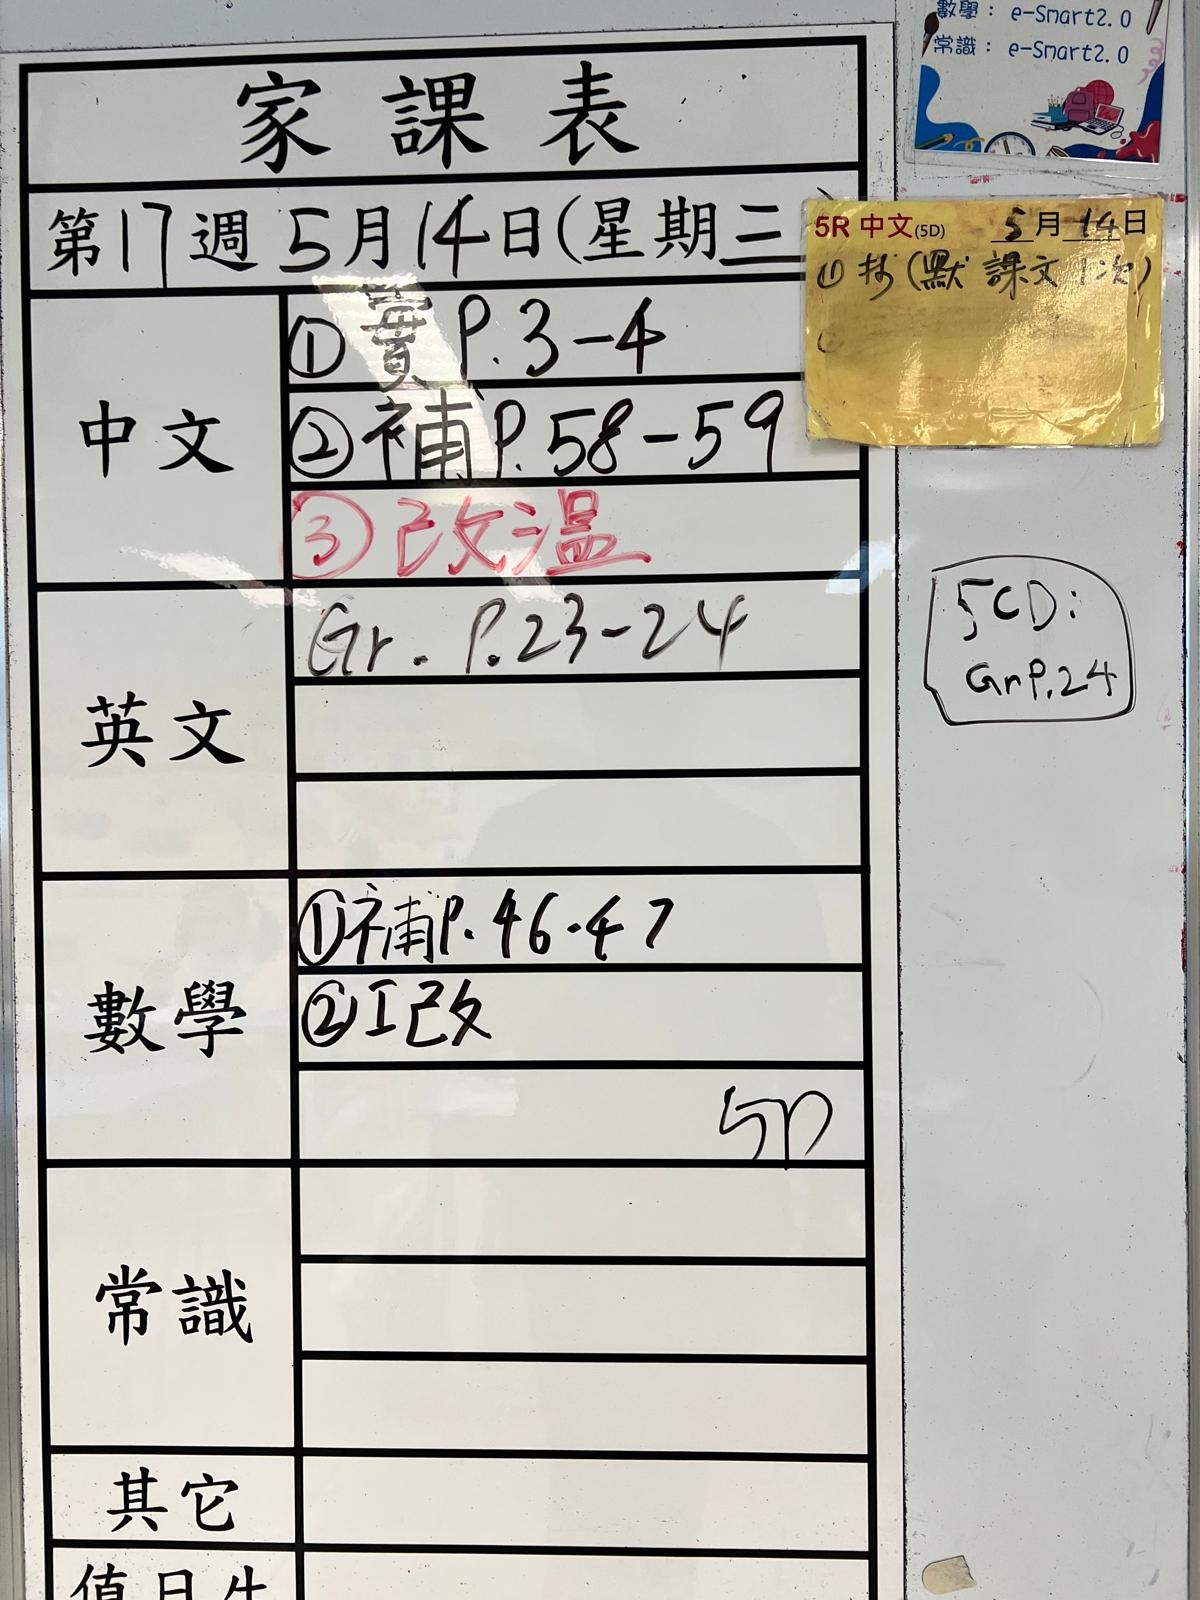 數學： e-Smart2.0
常識： e-Smart2.0
家課表
第17週 5月14日(星期三)
5R 中文(5D) 5月14日
① 抄(默 課文1次)
②
中文
① 實 P.3-4
② 補 P.58-59
③ 改溫
英文
Gr. P.23-24
5CD:
Gr P.24
數學
① 補 P.46-47
② I改
5D
常識
其它
值日生